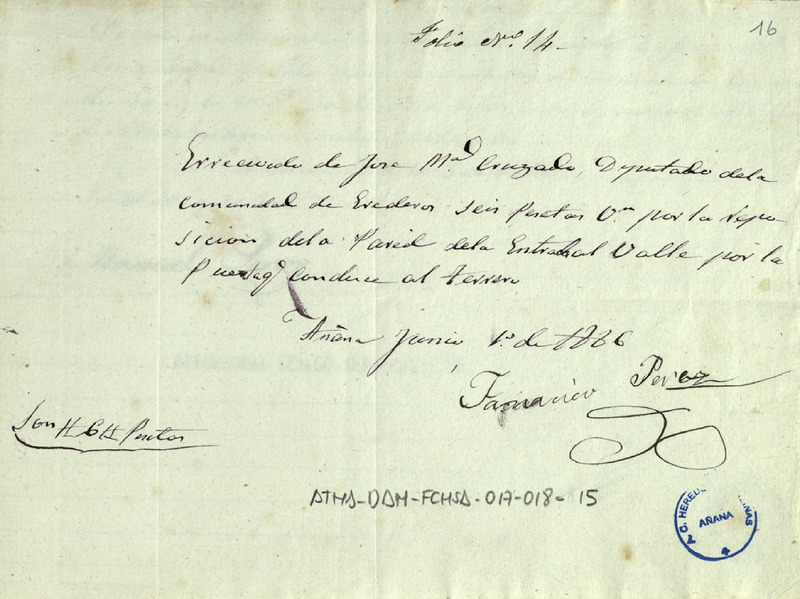 16
Folio Nro. 14-
Errecivido de Jose Ma. Cruzado, Deputado dela
comunidad de Erederos seis Pesetas Vn. por la repo
sicion dela Pared dela Entrada al Valle por la
Puertaq. conduce al terrero
Añana Junio 1º de 1866
Perez
Son # 6 # Pesetas
ATHA-DAM-FCHSA-017-018-15
AÑANA